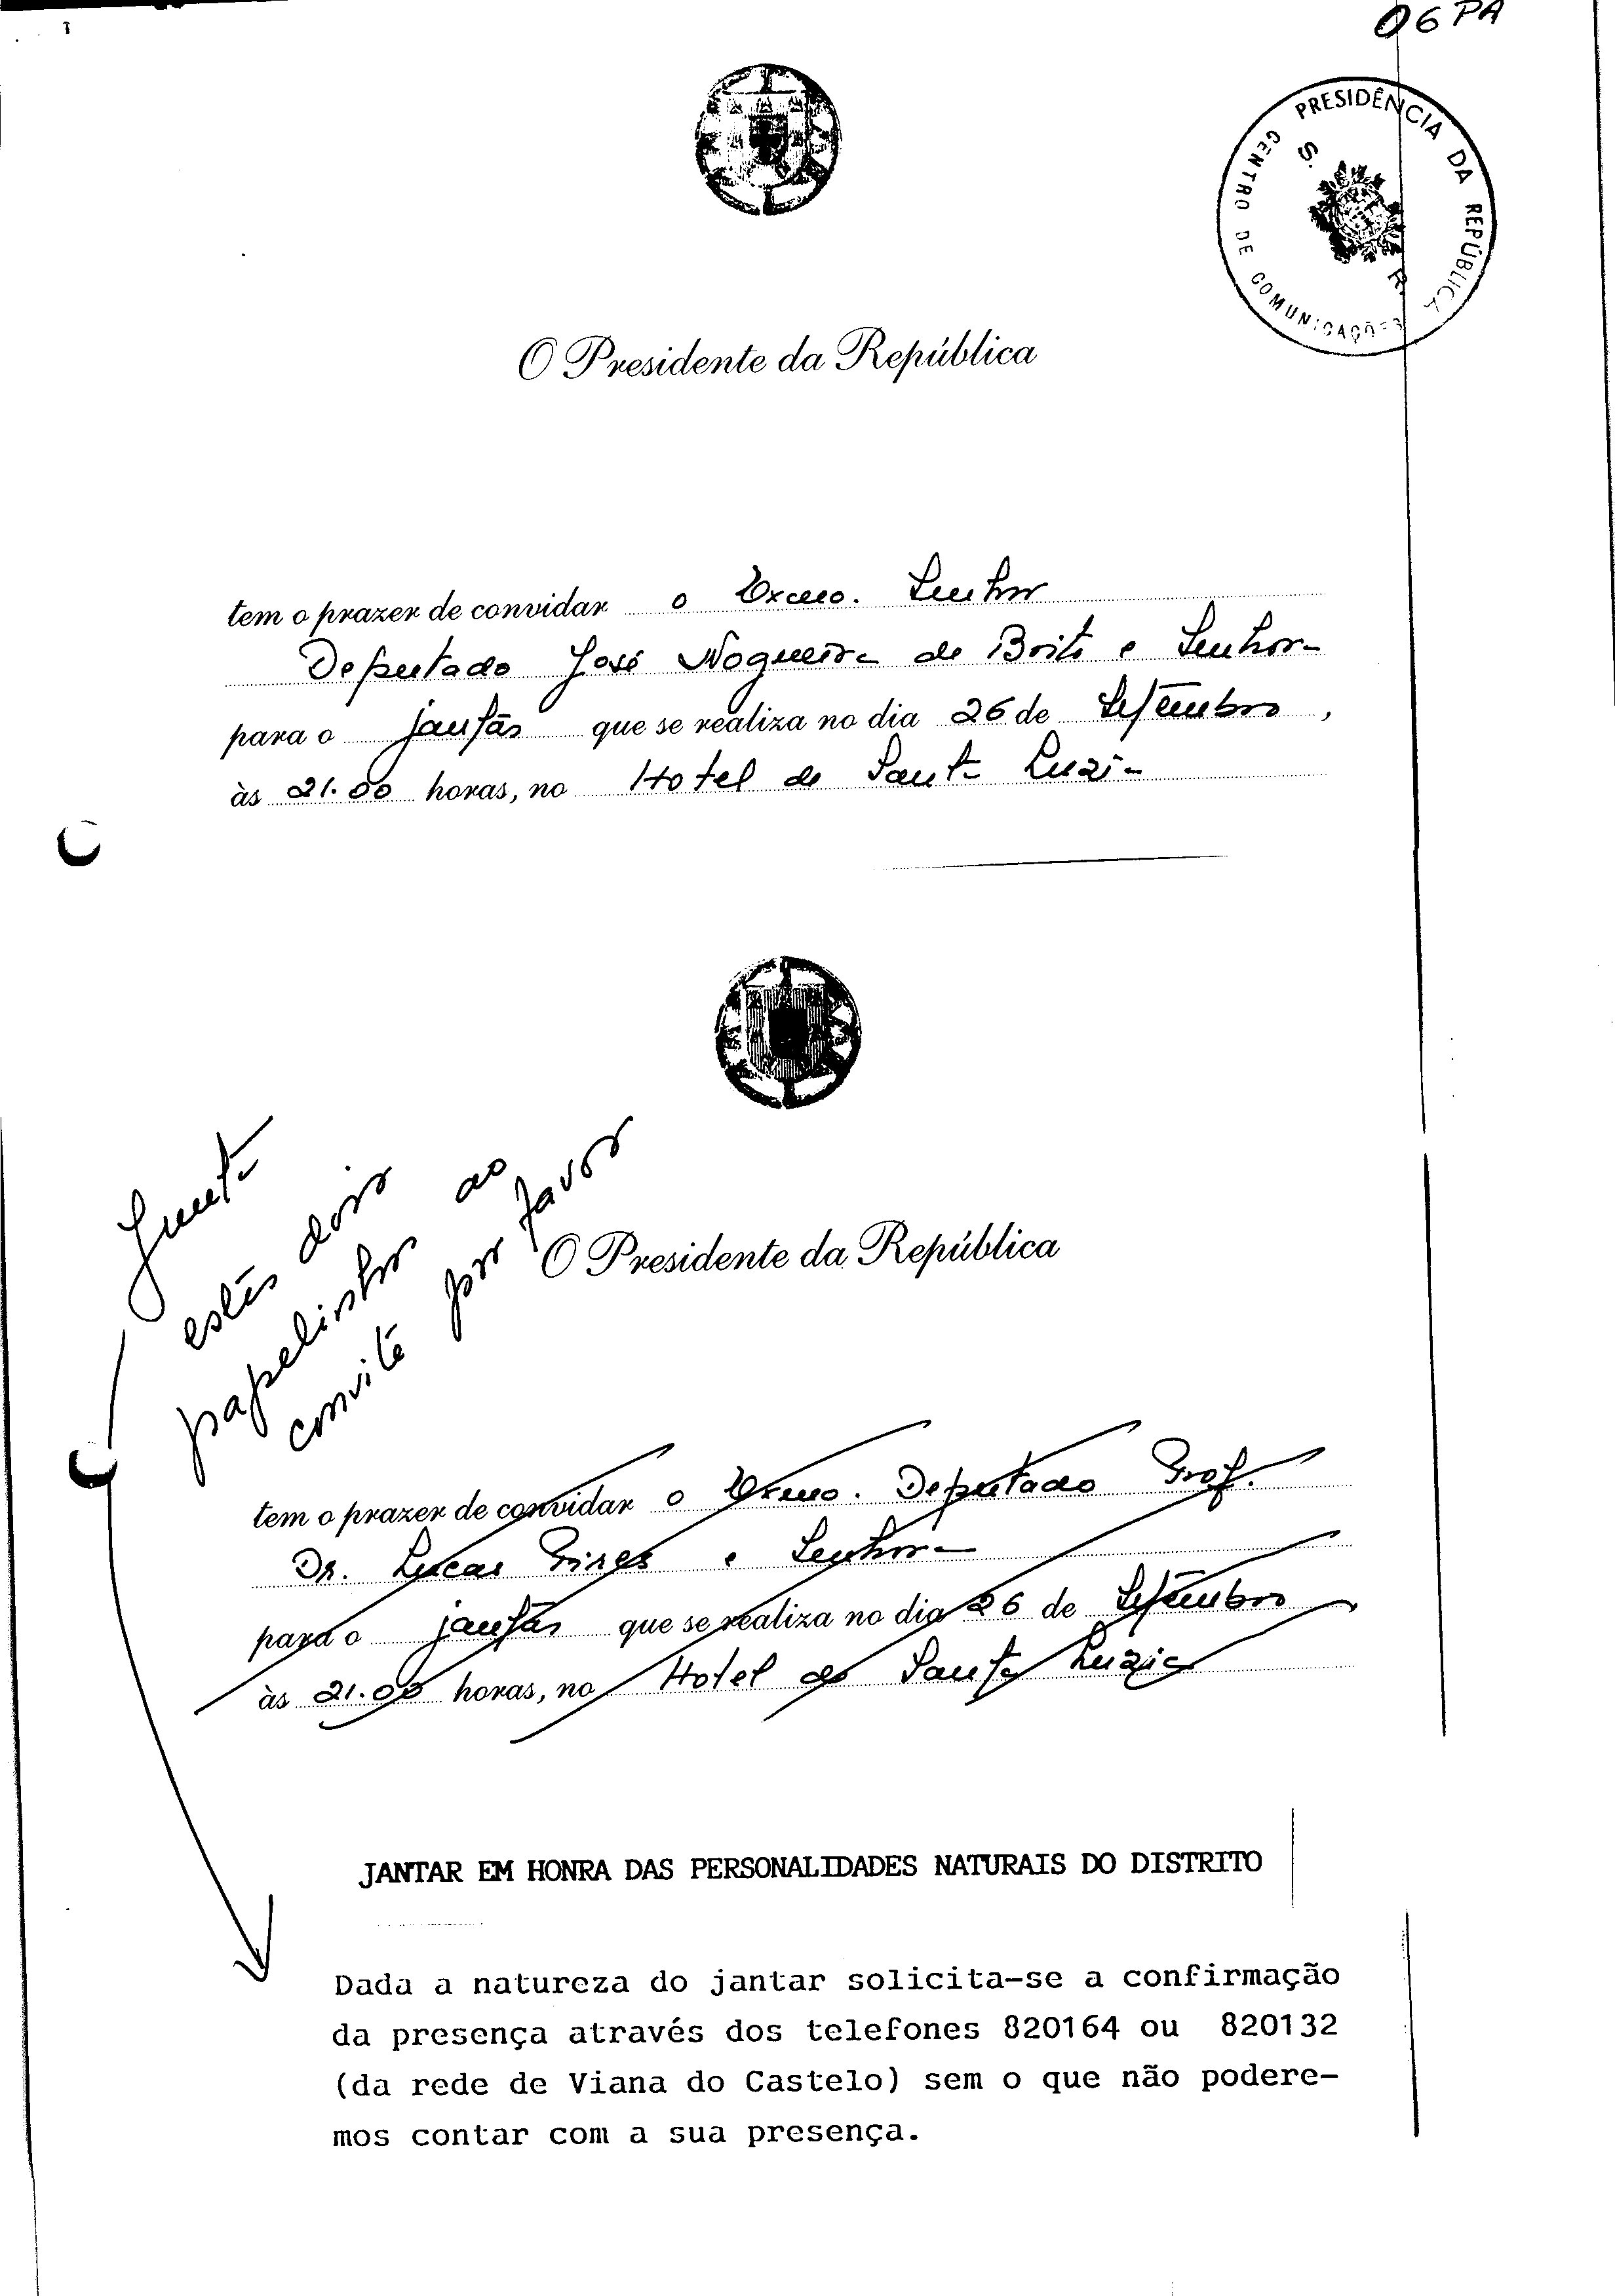 06 PA
PRESIDÊNCIA DA REPÚBLICA
CENTRO DE COMUNICAÇÕES
S. R.
O Presidente da República
tem o prazer de convidar o Excmo. Senhor
Deputado José Nogueira de Brito e Senhora
para o jantar que se realiza no dia 26 de Setembro,
às 21.00 horas, no Hotel de Santa Luzia
Junte
estes dois
papelinhos ao
convite por favor
O Presidente da República
tem o prazer de convidar o Exmo. Deputado Prof.
Dr. Lucas Pires e Senhora
para o jantar que se realiza no dia 26 de Setembro
às 21.00 horas, no Hotel de Santa Luzia
JANTAR EM HONRA DAS PERSONALIDADES NATURAIS DO DISTRITO
Dada a natureza do jantar solicita-se a confirmação
da presença através dos telefones 820164 ou 820132
(da rede de Viana do Castelo) sem o que não podere-
mos contar com a sua presença.